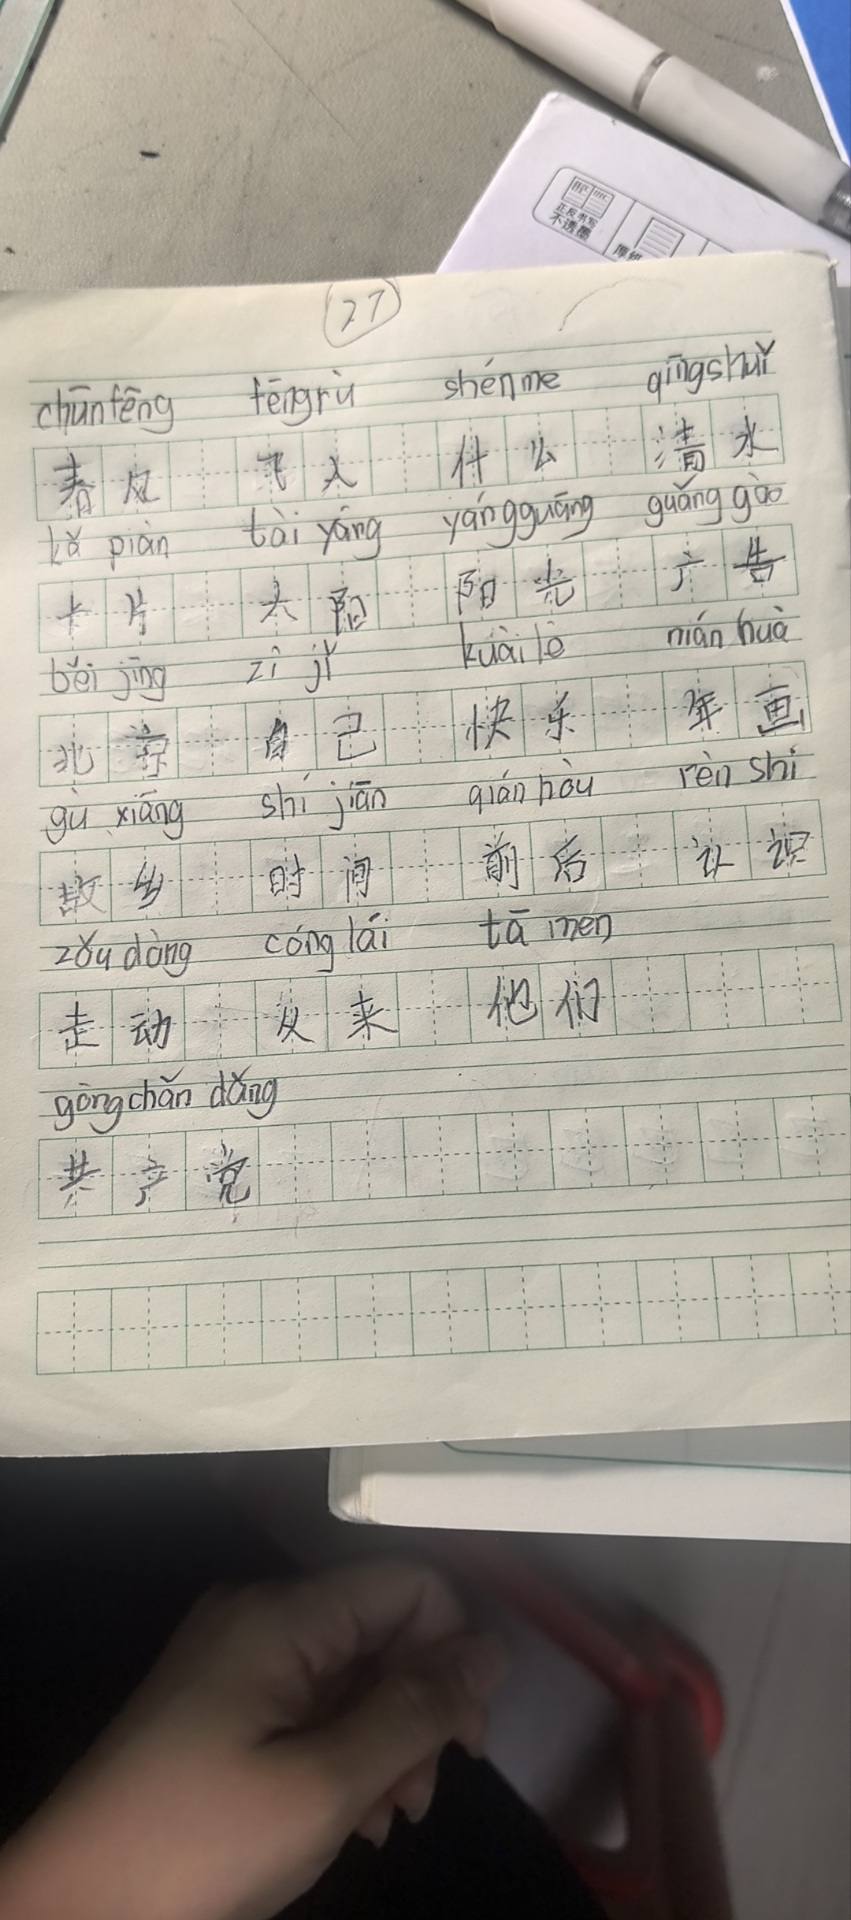 正反书写
不透墨
27
chūnfēng fēngrù shénme qīngshuǐ
春风 飞入 什么 清水
kǎ piàn tài yáng yángguāng guǎng gào
卡片 太阳 阳光 广告
běi jīng zì jǐ kuài lè nián huà
北京 自己 快乐 年画
gù xiāng shí jiān qián hòu rèn shi
故乡 时间 前后 认识
zǒu dòng cóng lái tā men
走动 从来 他们
gòng chǎn dǎng
共产党